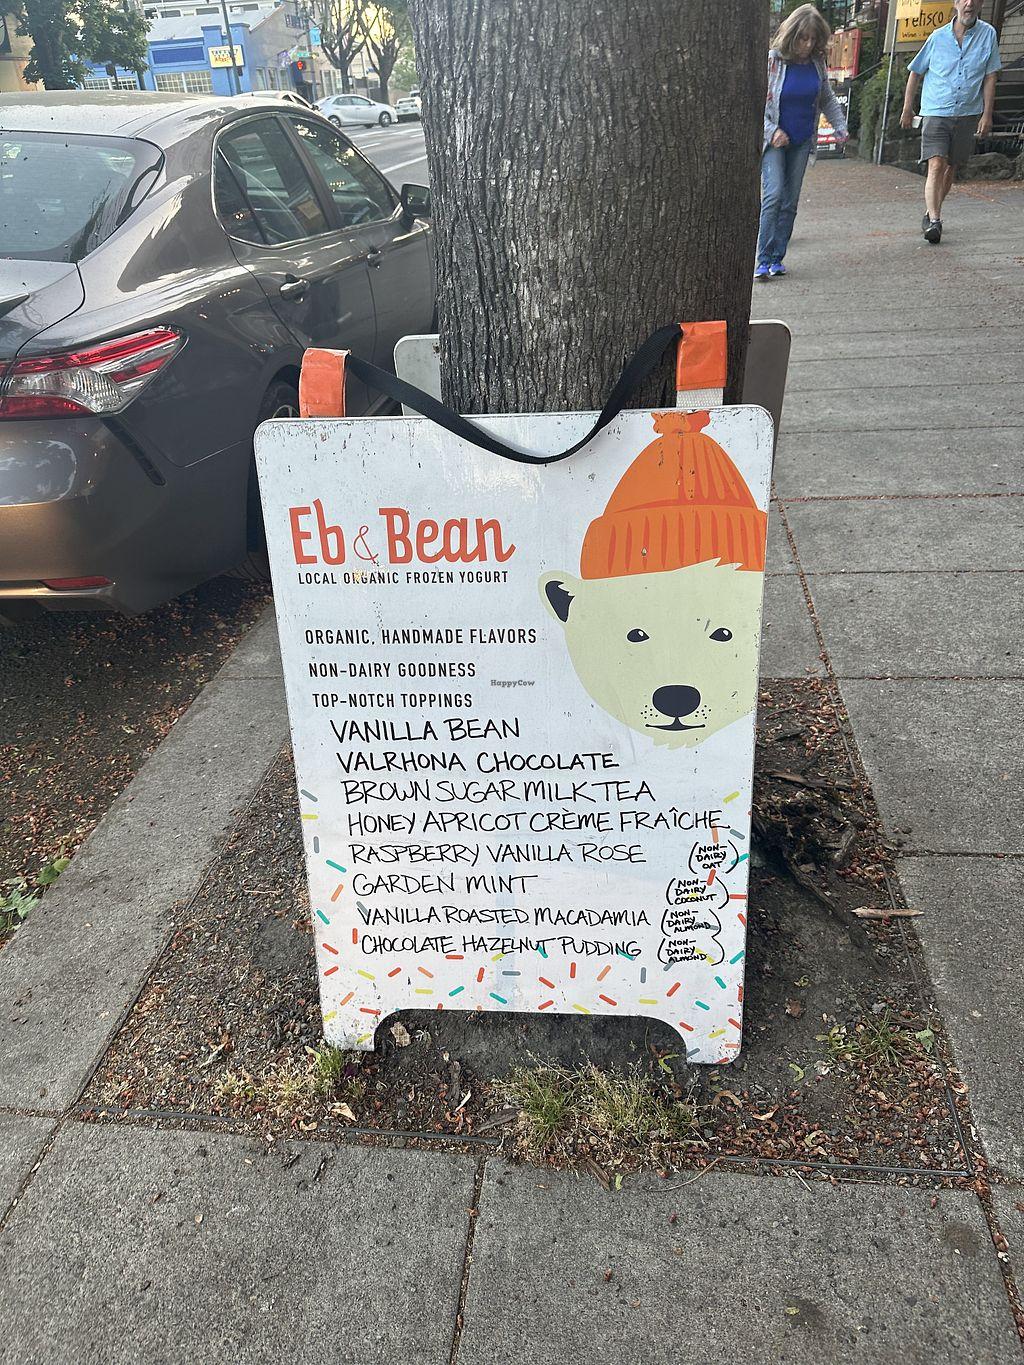 Felisco
Eb & Bean
LOCAL ORGANIC FROZEN YOGURT
ORGANIC, HANDMADE FLAVORS
NON-DAIRY GOODNESS
HappyCow
TOP-NOTCH TOPPINGS
VANILLA BEAN
VALRHONA CHOCOLATE
BROWN SUGAR MILK TEA
HONEY APRICOT CRÈME FRAÎCHE
RASPBERRY VANILLA ROSE (NON-DAIRY OAT)
GARDEN MINT (NON-DAIRY COCONUT)
VANILLA ROASTED MACADAMIA (NON-DAIRY ALMOND)
CHOCOLATE HAZELNUT PUDDING (NON-DAIRY ALMOND)